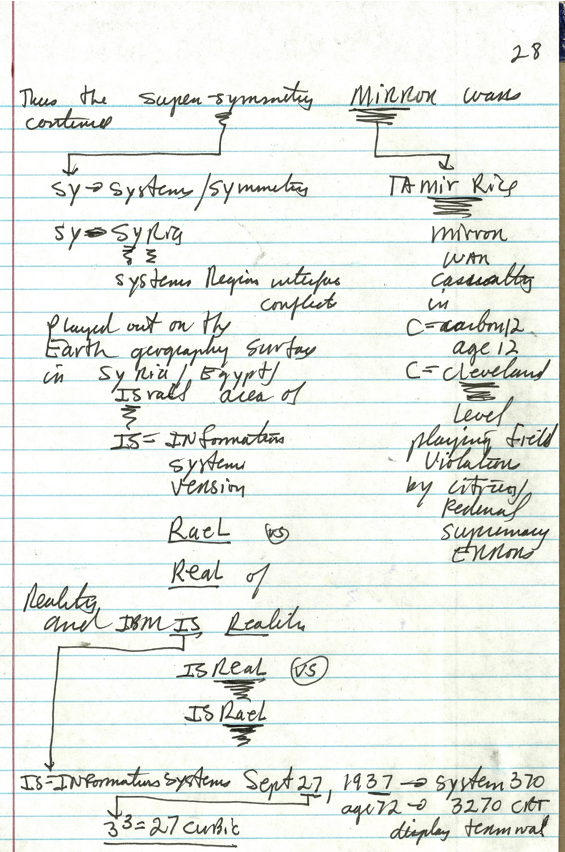 28
Thus the super-symmetry MIRROR wars
continued
Sy → Systems / Symmetries
Sy → SyRia
Systems Region interface
conflict
played out on the
Earth geography surface
in SyRia / Egypt /
ISrael area of
IS = INformation
system
version
RaeL vs
Real of
Reality
and IBM IS Reality
IS Real vs
IS Rael
TAmir Rice
mirror
war
casualty
in
C = carbon 12
age 12
C = cleveland
level
playing field
violation
by cities/
Federal
supremacy
ERRORS
IS = INformation Systems Sept 27, 1937 → system 370
age 72 → 3270 CRT
display terminal
3³ = 27 cubic